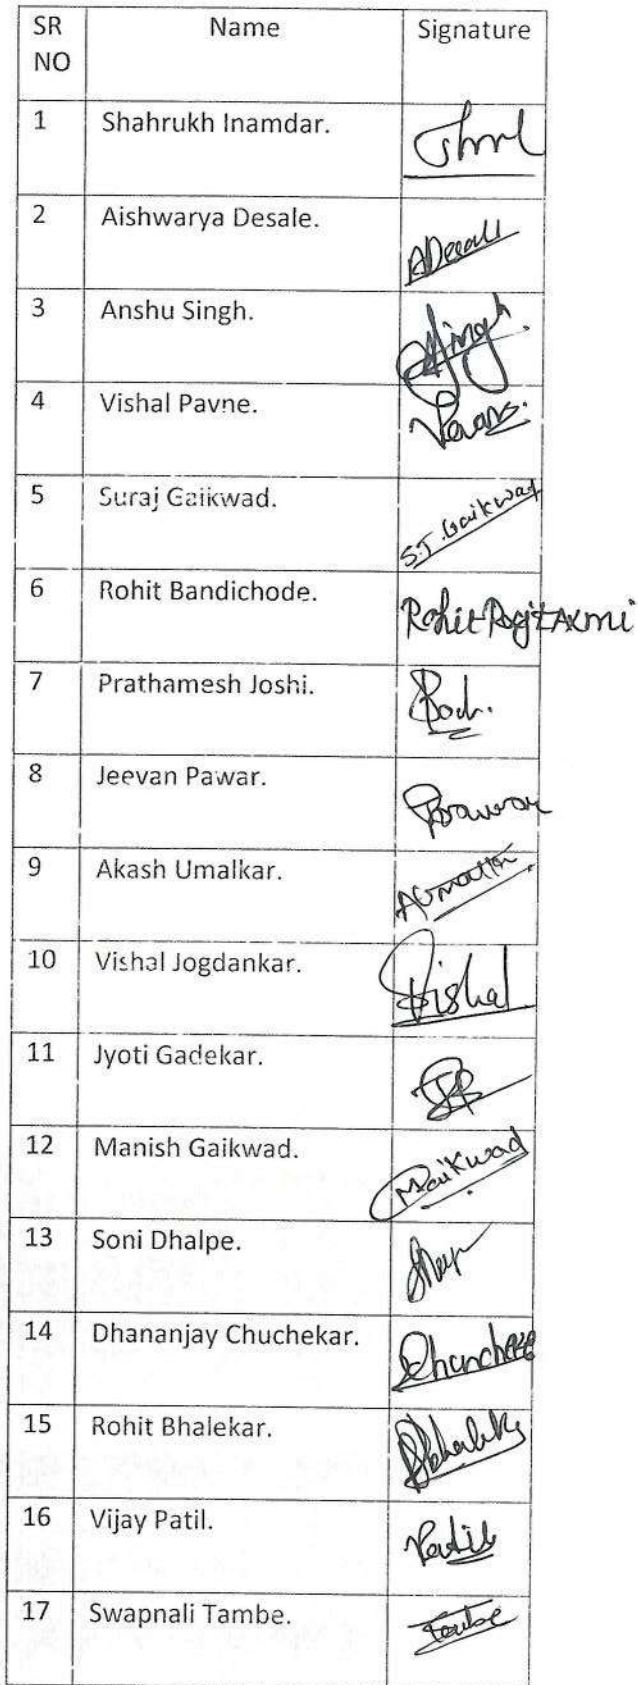 SR Name Signature
NO
1 Shahrukh Inamdar.
2 Aishwarya Desale. ADesale
3 Anshu Singh. ASingh.
4 Vishal Pavne.
5 Suraj Gaikwad. S.J. Gaikwad
6 Rohit Bandichode. Rohit
7 Prathamesh Joshi.
8 Jeevan Pawar.
9 Akash Umalkar.
10 Vishal Jogdankar. Vishal
11 Jyoti Gadekar.
12 Manish Gaikwad. MGaikwad
13 Soni Dhalpe.
14 Dhananjay Chuchekar.
15 Rohit Bhalekar.
16 Vijay Patil. Patil
17 Swapnali Tambe. Tambe